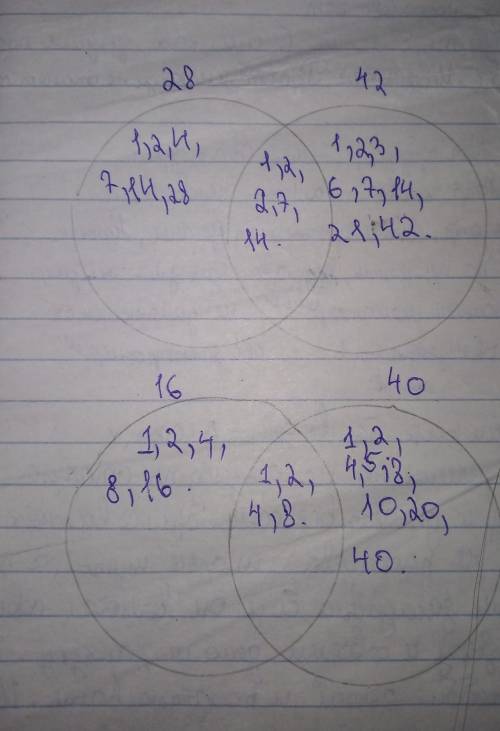 28
42
1,2,4,
7,14,28
1,2,
2,7,
14.
1,2,3,
6,7,14,
21,42.
16
40
1,2,4,
8,16.
1,2,
4,8.
1,2,
4,5,8,
10,20,
40.